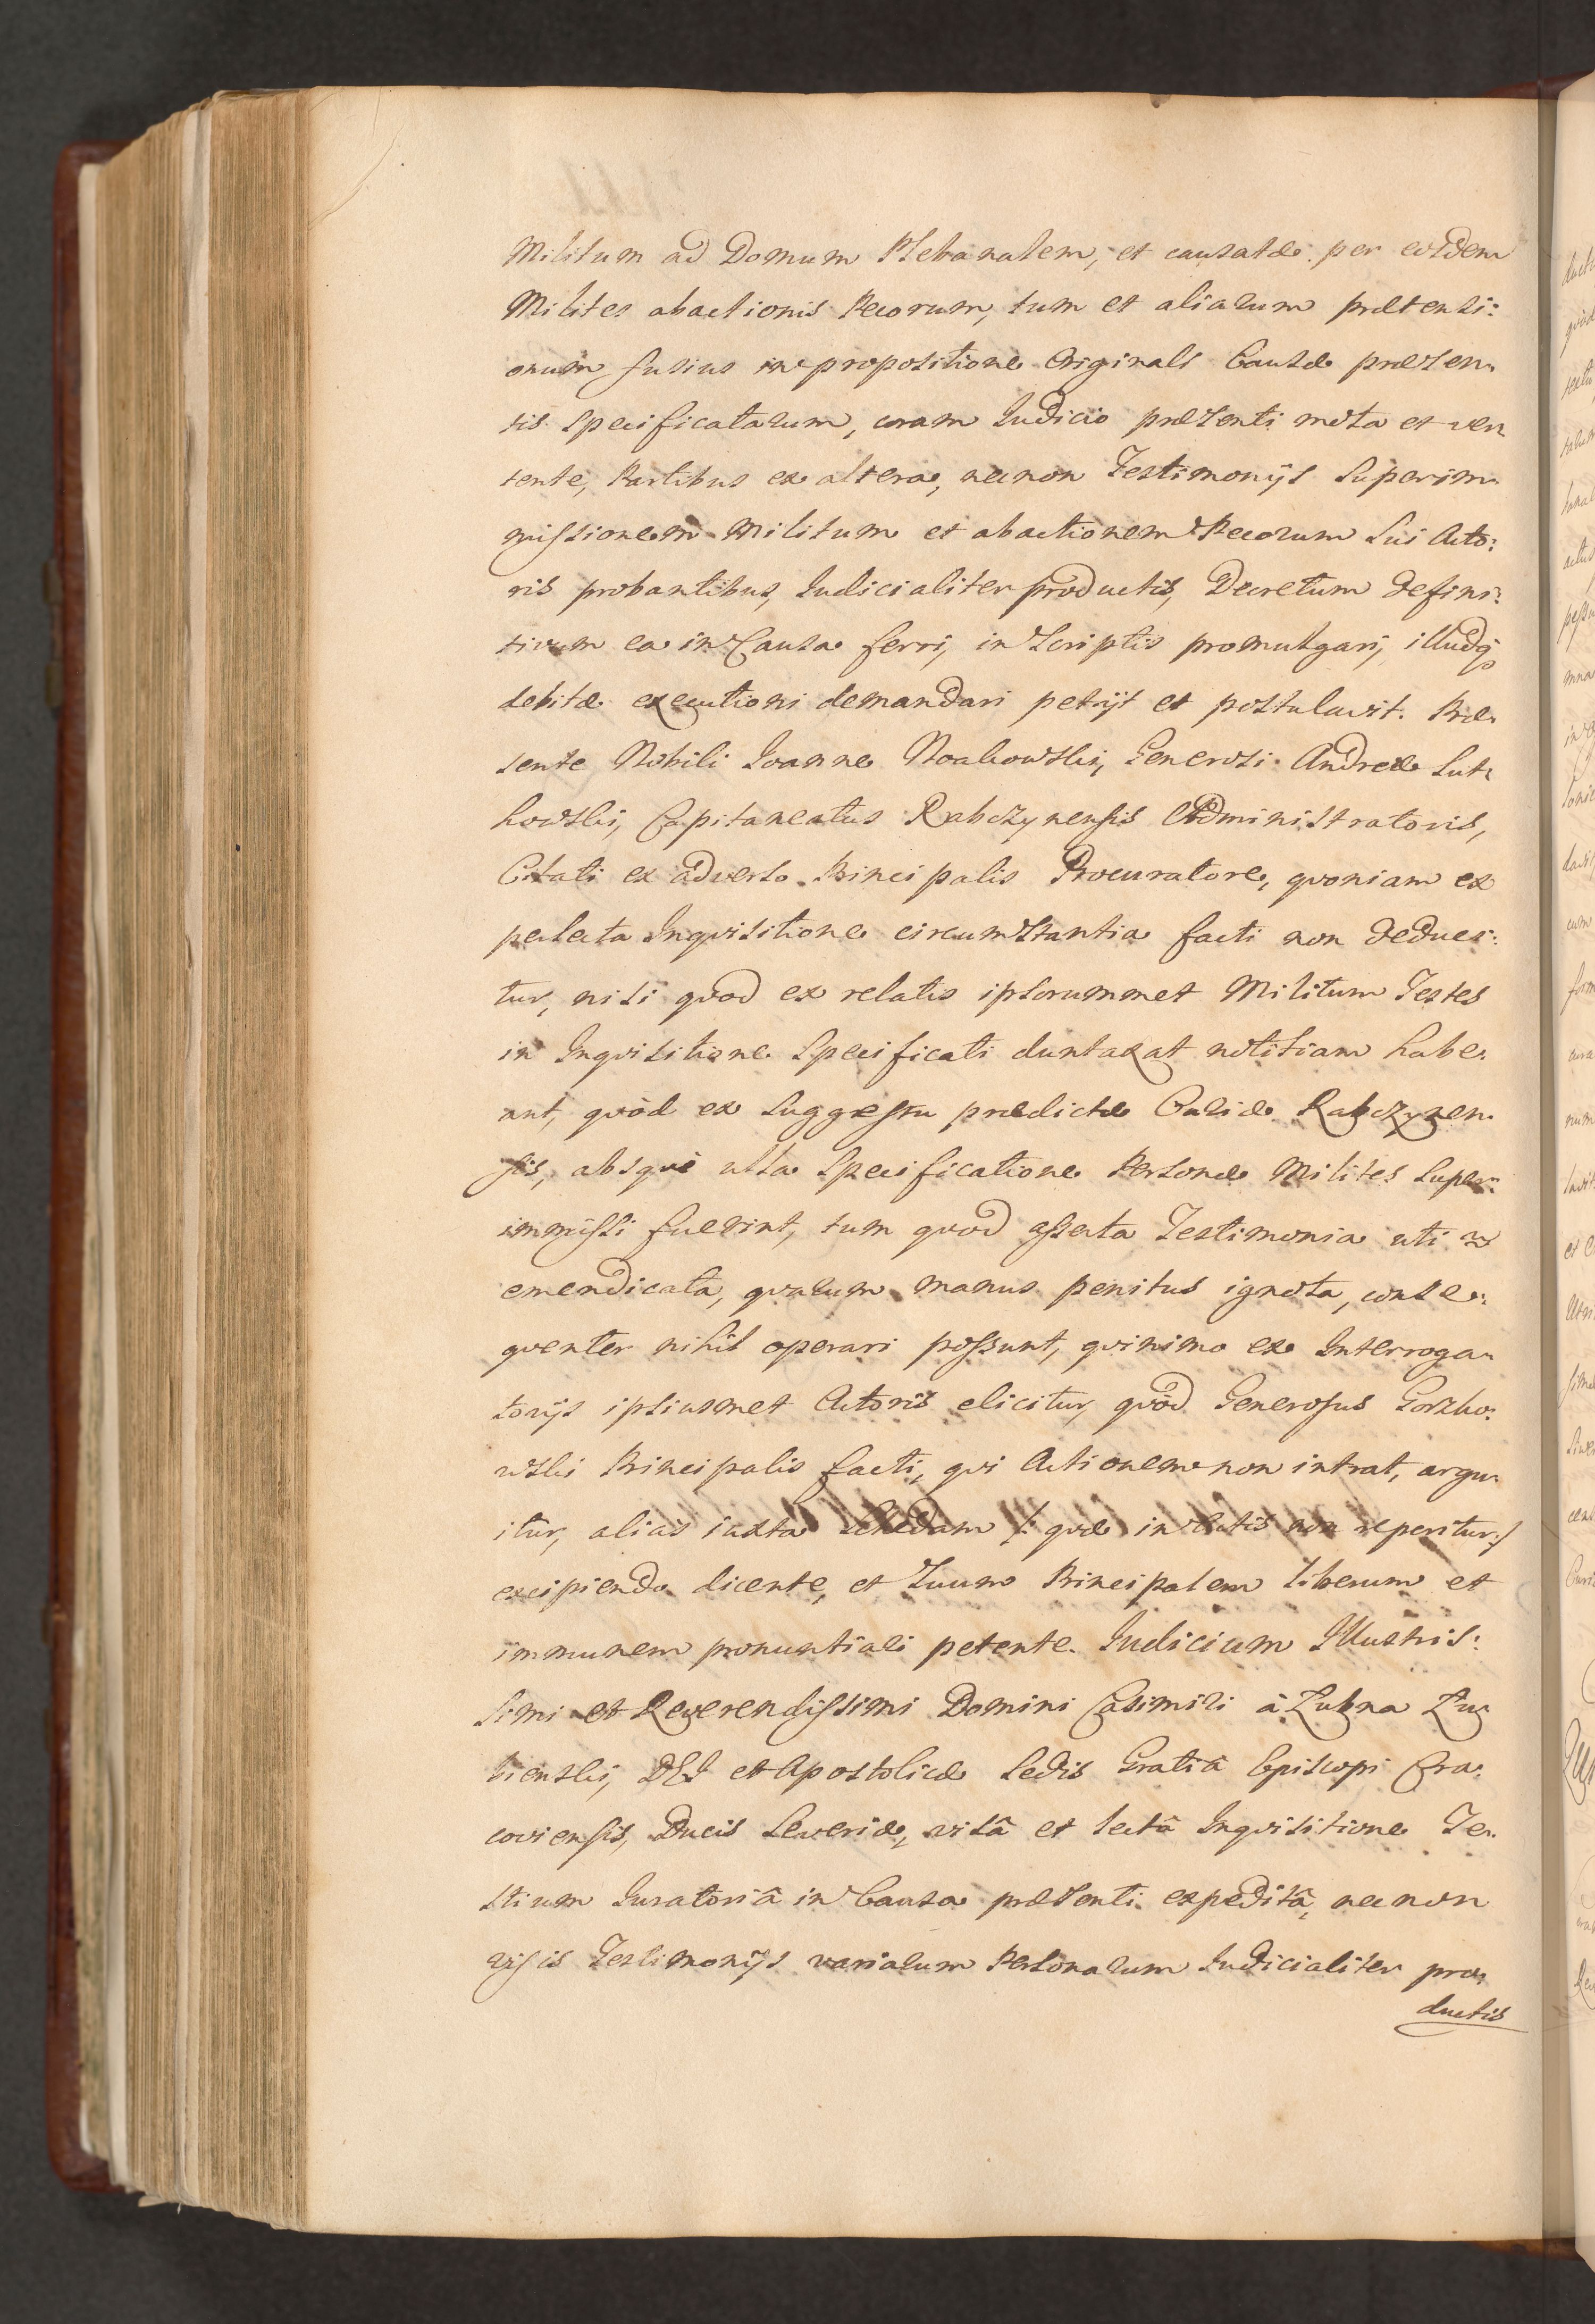 Militum ad Domum Plebanalem, et causatæ per eosdem
Milites abactionis Pecorum, tum et aliarum prætensi:
onum fusius in propositione Originali Causæ præsen:
tis specificatarum, coram Iudicio præsenti mota et ver:
tente, Partibus ex altera, necnon Testimonijs superim:
missionem Militum et abactionem Pecorum sui Acto:
ris probantibus, Iudicialiter productis, Decretum defini:
tivum ea in Causa ferri, in scriptis promulgari, illudq
debitæ executioni demandari petijt et postulavit. Præ:
sente Nobili Ioanne Noakowski, Generosi Andreæ Sut:
kowski, Capitaneatus Rabsztynensis Administratoris,
Citati ex adverso Principalis Procuratore, quoniam ex
perlecta Inquisitione circumstantia facti non deduci:
tur, nisi quod ex relatis ipsorummet Militum Testes
in Inquisitione specificati duntaxat notitiam habe:
ant, quòd ex suggestu prædictæ Curiæ Rabsztynen:
sis, absque ulla specificatione Personæ Milites super:
immissi fuerint, tum quod asserta Testimonia uti
emendicata, quarum manus penitus ignota, conse:
quenter nihil operari possunt, quinimo ex Interroga:
torijs ipsiusmet Actoris elicitur, quòd Generosus Gorzko:
wski Principalis facti, qui Actionem non intrat, argu:
itur, alias iuxta schedam /: quæ in Actis non reperitur :/
excipiendo dicente, et suum Principalem liberum et
immunem pronuntiari petente. Iudicium Illustris:
simi et Reverendissimi Domini Casimiri à Lubna Lu:
bienski, DEI et Apostolicæ Sedis Gratiâ Episcopi Cra:
coviensis, Ducis Severiæ, visâ et lectâ Inquisitione Te:
stium Iuratoriâ in Causa præsenti expeditâ, necnon
visis Testimonijs variarum Personarum Iudicialiter pro:
ductis